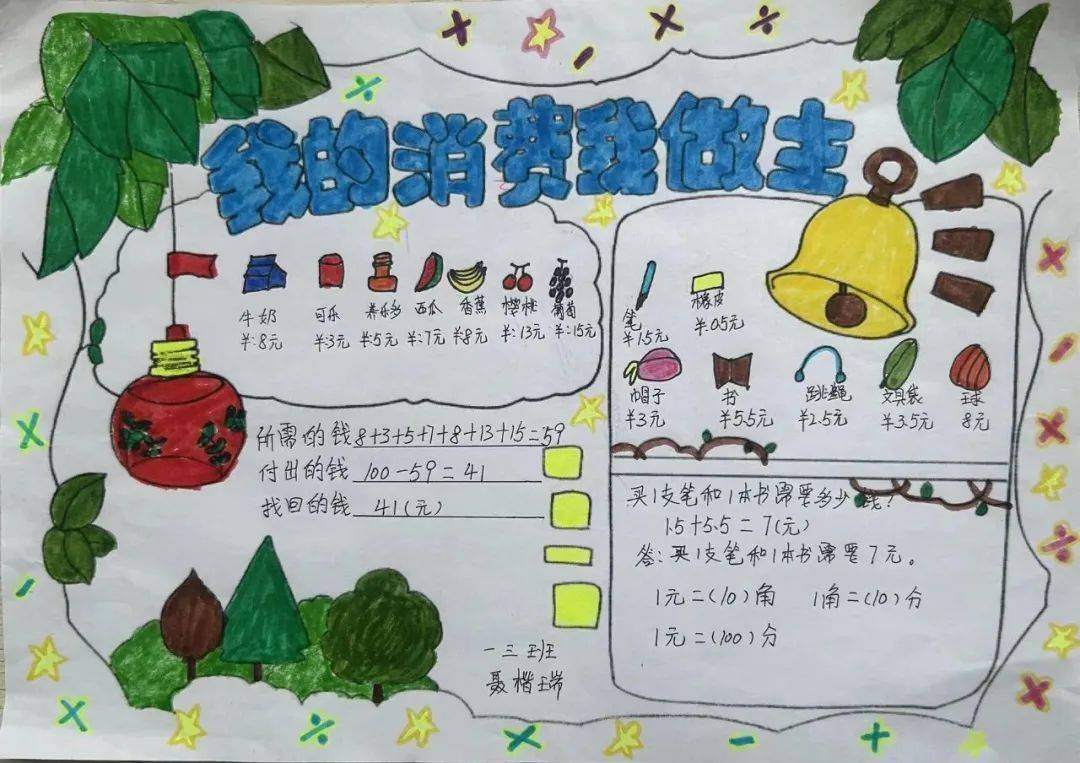 我的消费我做主
牛奶 可乐 养乐多 西瓜 香蕉 樱桃 葡萄
¥:8元 ¥:3元 ¥:5元 ¥:7元 ¥8元 ¥:13元 ¥:15元
所需的钱 8+3+5+7+8+13+15=59
付出的钱 100-59=41
找回的钱 41(元)
一三班
聂楷瑞
笔 橡皮
¥1.5元 ¥:0.5元
巾冒子 书 跳绳 文具袋 球
¥3元 ¥5.5元 ¥2.5元 ¥3.5元 8元
买1支笔和1本书需要多少钱?
1.5+5.5=7(元)
答:买1支笔和1本书需要7元。
1元=(10)角 1角=(10)分
1元=(100)分